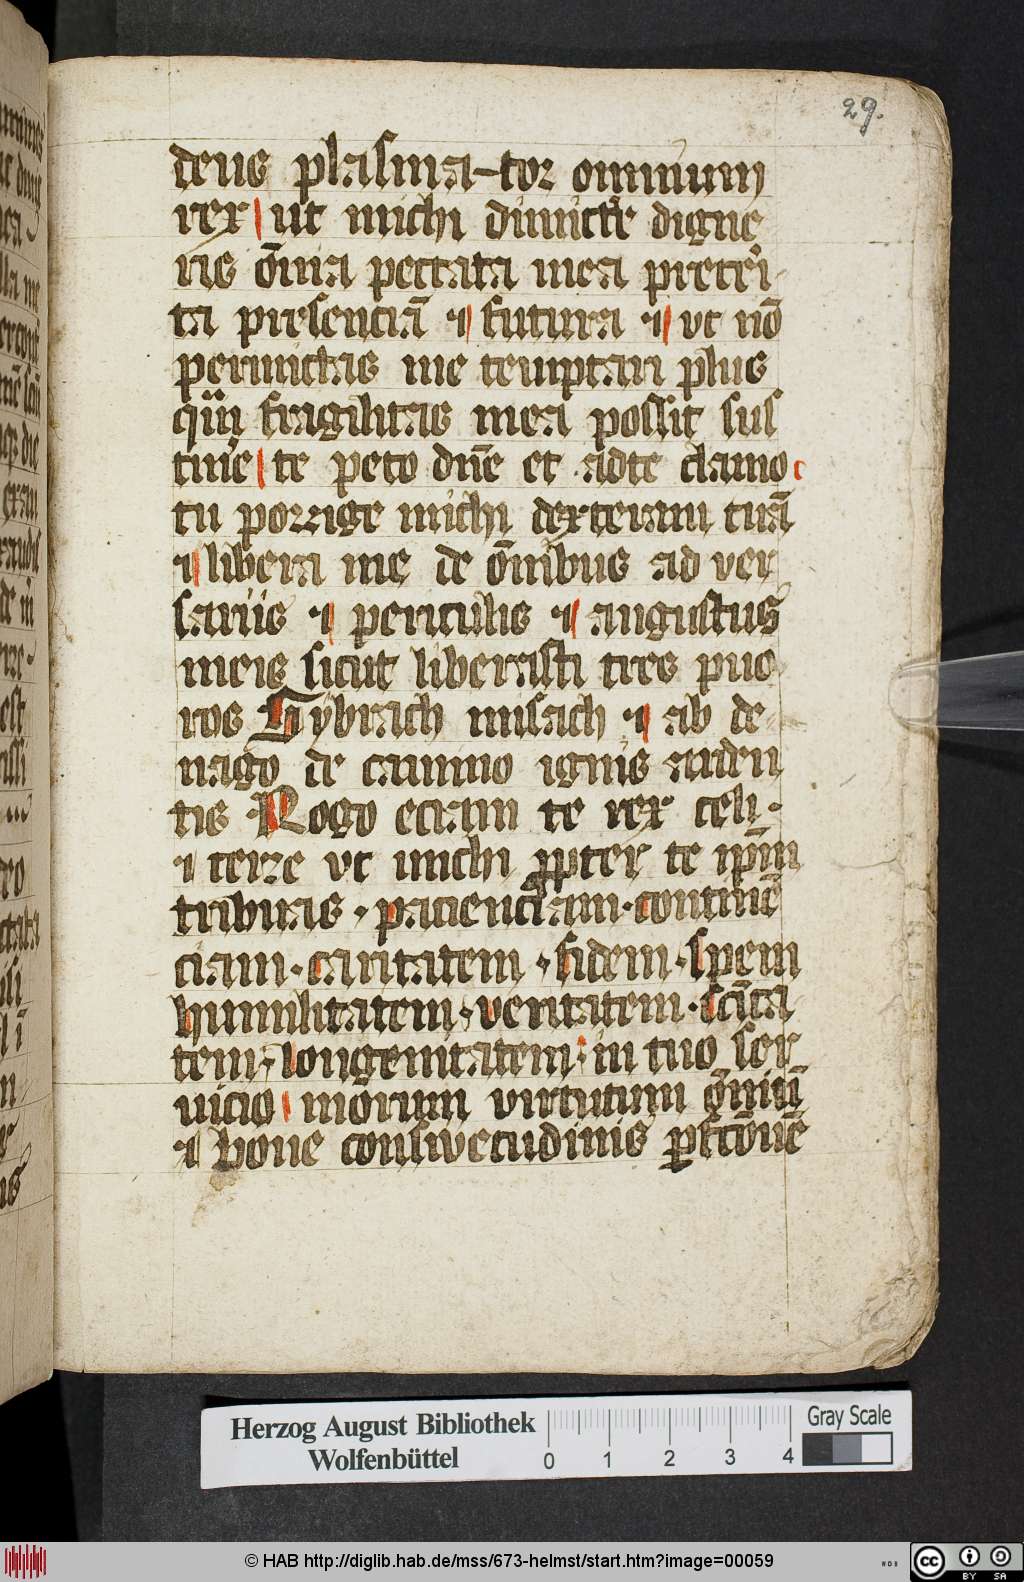 29.
deus plasma-tor omnium
rex ut michi dimitte digne
ris om̄ia peccata mea preteri
ta presenciā ⁊ futura ⁊ ut nō
permictas me temptari plus
fragilitas mea possit sus
te peto dn̄e et ad te clamo
tu porrige michi dexteram tuā
⁊ libera me de om̄ibus ad ver
sariis ⁊ periculis ⁊ angustiis
meis sicut liberasti tres pue
ros Sydrach misach ⁊ ab de
nago de camino ignis arden
tis Rogo eciam te rex celi
⁊ terre ut michi ꝓpter te ip̄m
tribuas · pacienciam · contine
ciam · caritatem · fidem · spem
humilitatem · veritatem · sc̄ita
tem · longenitatem · in tuo ser
uicio morum virtutum om̄iū
⁊ bone conswetudinis
Herzog August Bibliothek
Wolfenbüttel
0 1 2 3 4
Gray Scale
© HAB http://diglib.hab.de/mss/673-helmst/start.htm?image=00059
cc BY SA